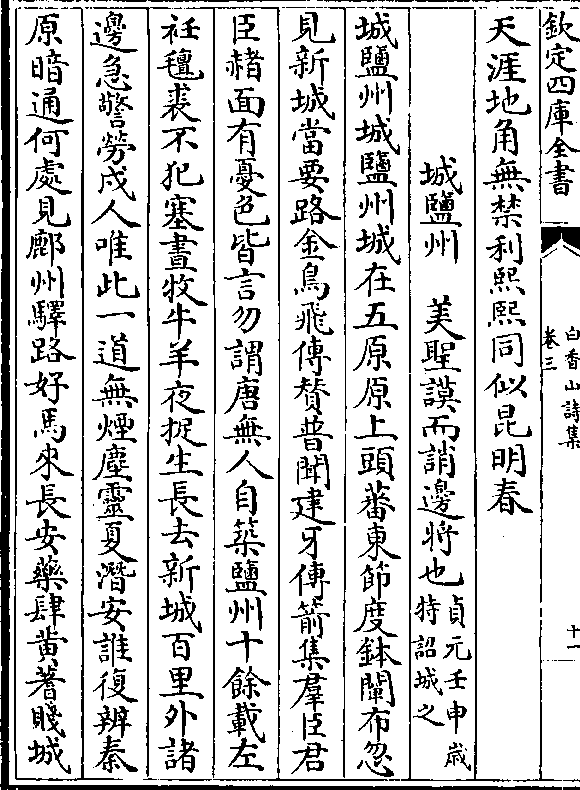 欽定四庫全書
白香山詩集
卷三
十一
天涯地角無禁利熙熙同似昆明春
城鹽州　美聖謨而誚邊將也貞元壬申歲特詔城之
城鹽州城鹽州城在五原原上頭蕃東節度鉢闡布忽
見新城當要路金鳥飛傳贊普聞建牙傳箭集羣臣君
臣赭面有憂色皆言勿謂唐無人自築鹽州十餘載左
衽氊裘不犯塞晝牧牛羊夜捉生長去新城百里外諸
邊急警勞戍人唯此一道無煙塵靈夏潛安誰復辨秦
原暗通何處見鄜州驛路好馬來長安藥肆黃蓍賤城